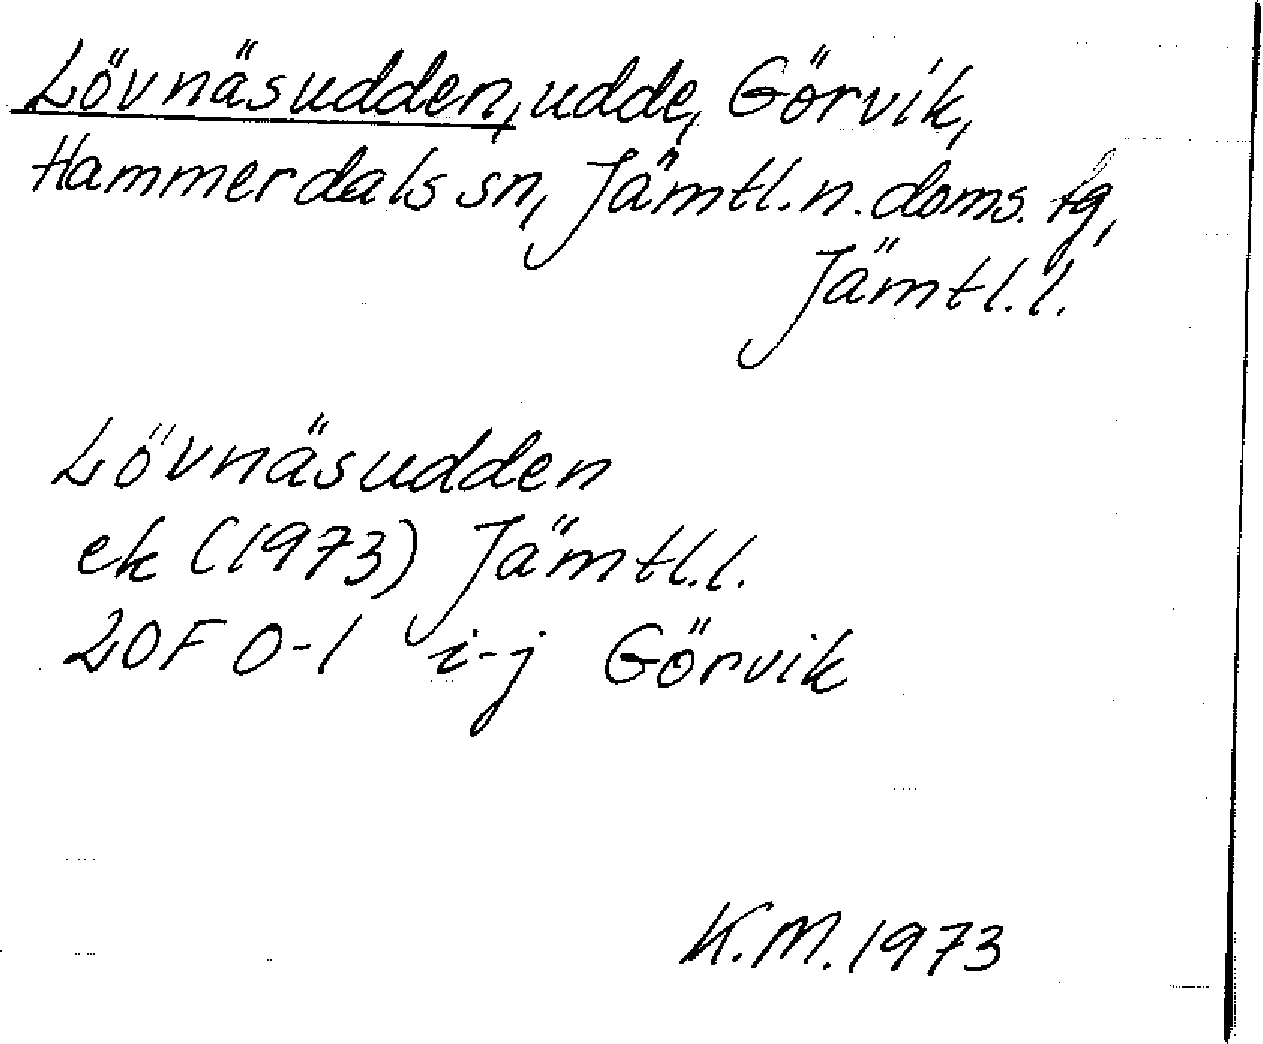 Lövnäsudden, udde, Görvik,
Hammerdals sn, Jämtl. n. doms. tg,
Jämtl. l.
Lövnäsudden
ek (1973) Jämtl. l.
20F 0-1 i-j Görvik
K.M. 1973